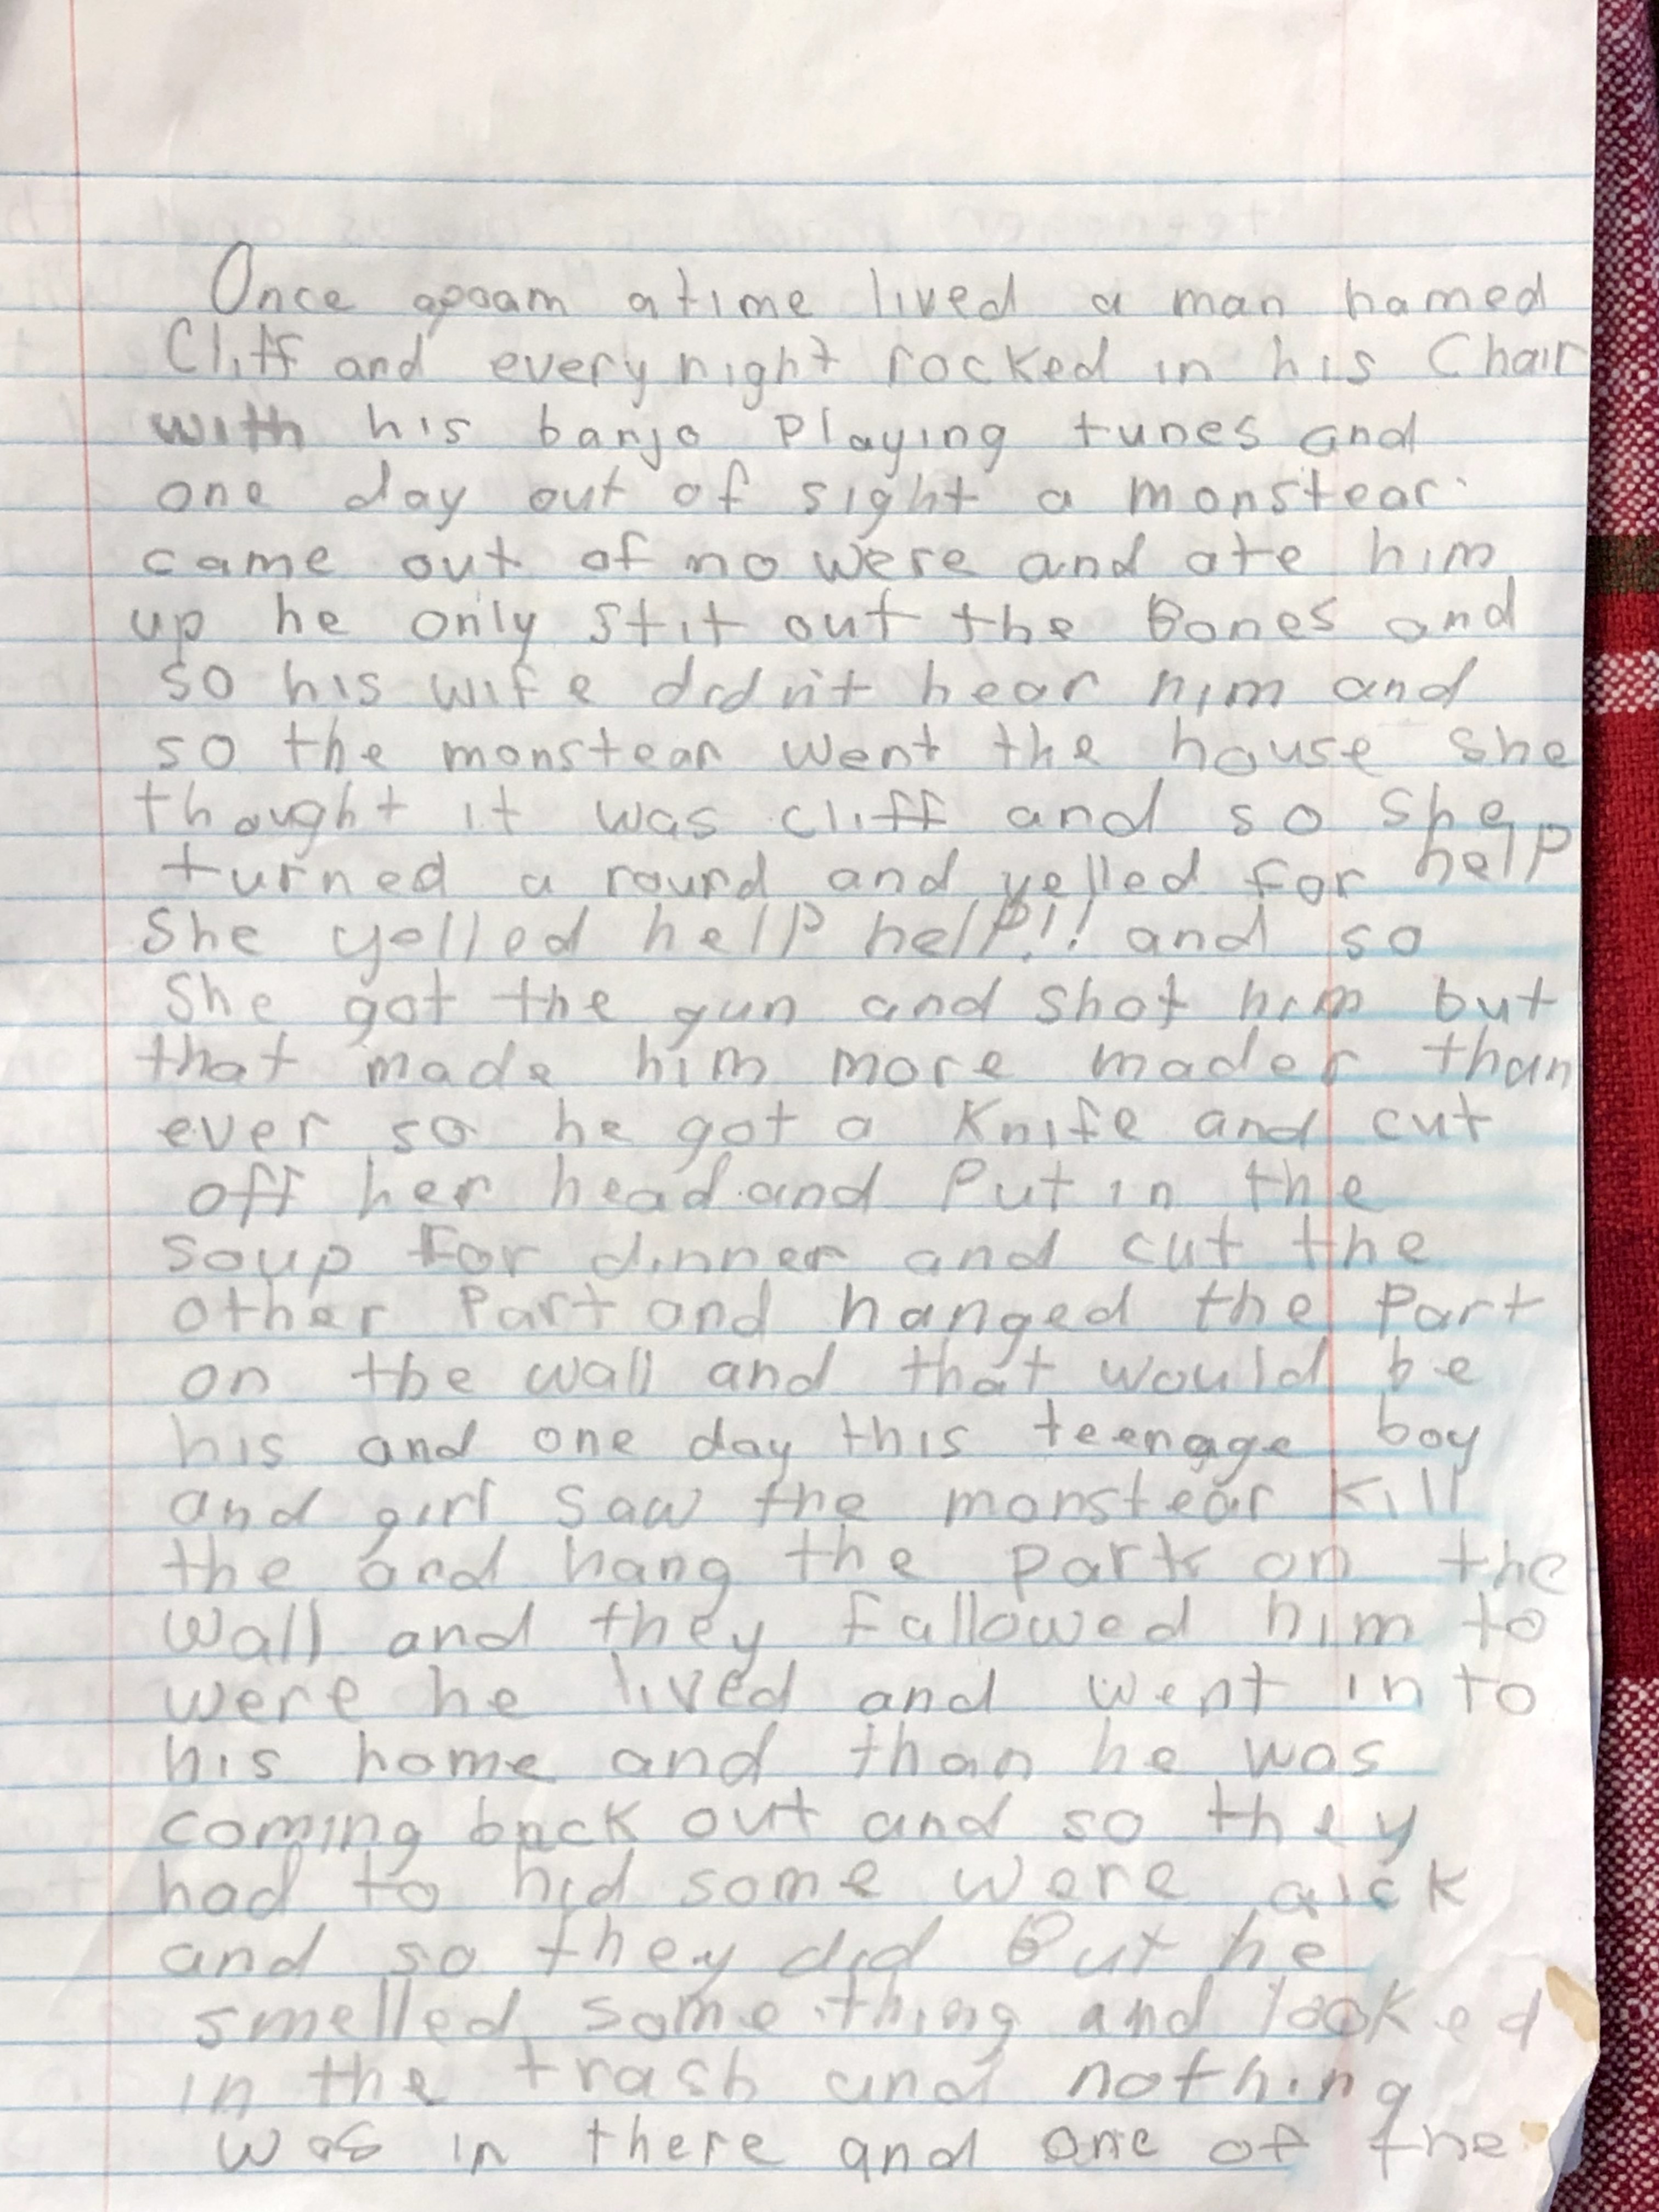 Once apoam atime lived a man named
Cliff and every night rocked in his Chair
with his banjo Playing tunes and
one day out of sight a monstear
came out of no were and ate him
up he only stit out the Bones and
so his wife didn't hear him and
so the monstear went the house she
thought it was cliff and so she
turned a round and yelled for help
She yelled help help!! and so
She got the gun and shot him but
that made him more mader than
ever so he got a Knife and cut
off her head and Put in the
soup for dinner and cut the
other Part and hanged the Part
on the wall and that would be
his and one day this teenage boy
and girl saw the monstear Kill
the and hang the parts on the
wall and they fallowed him to
were he lived and went in to
his home and than he was
coming back out and so they
had to hid some were qick
and so they did But he
smelled some thing and looked
in the trash and nothing
was in there and one of the